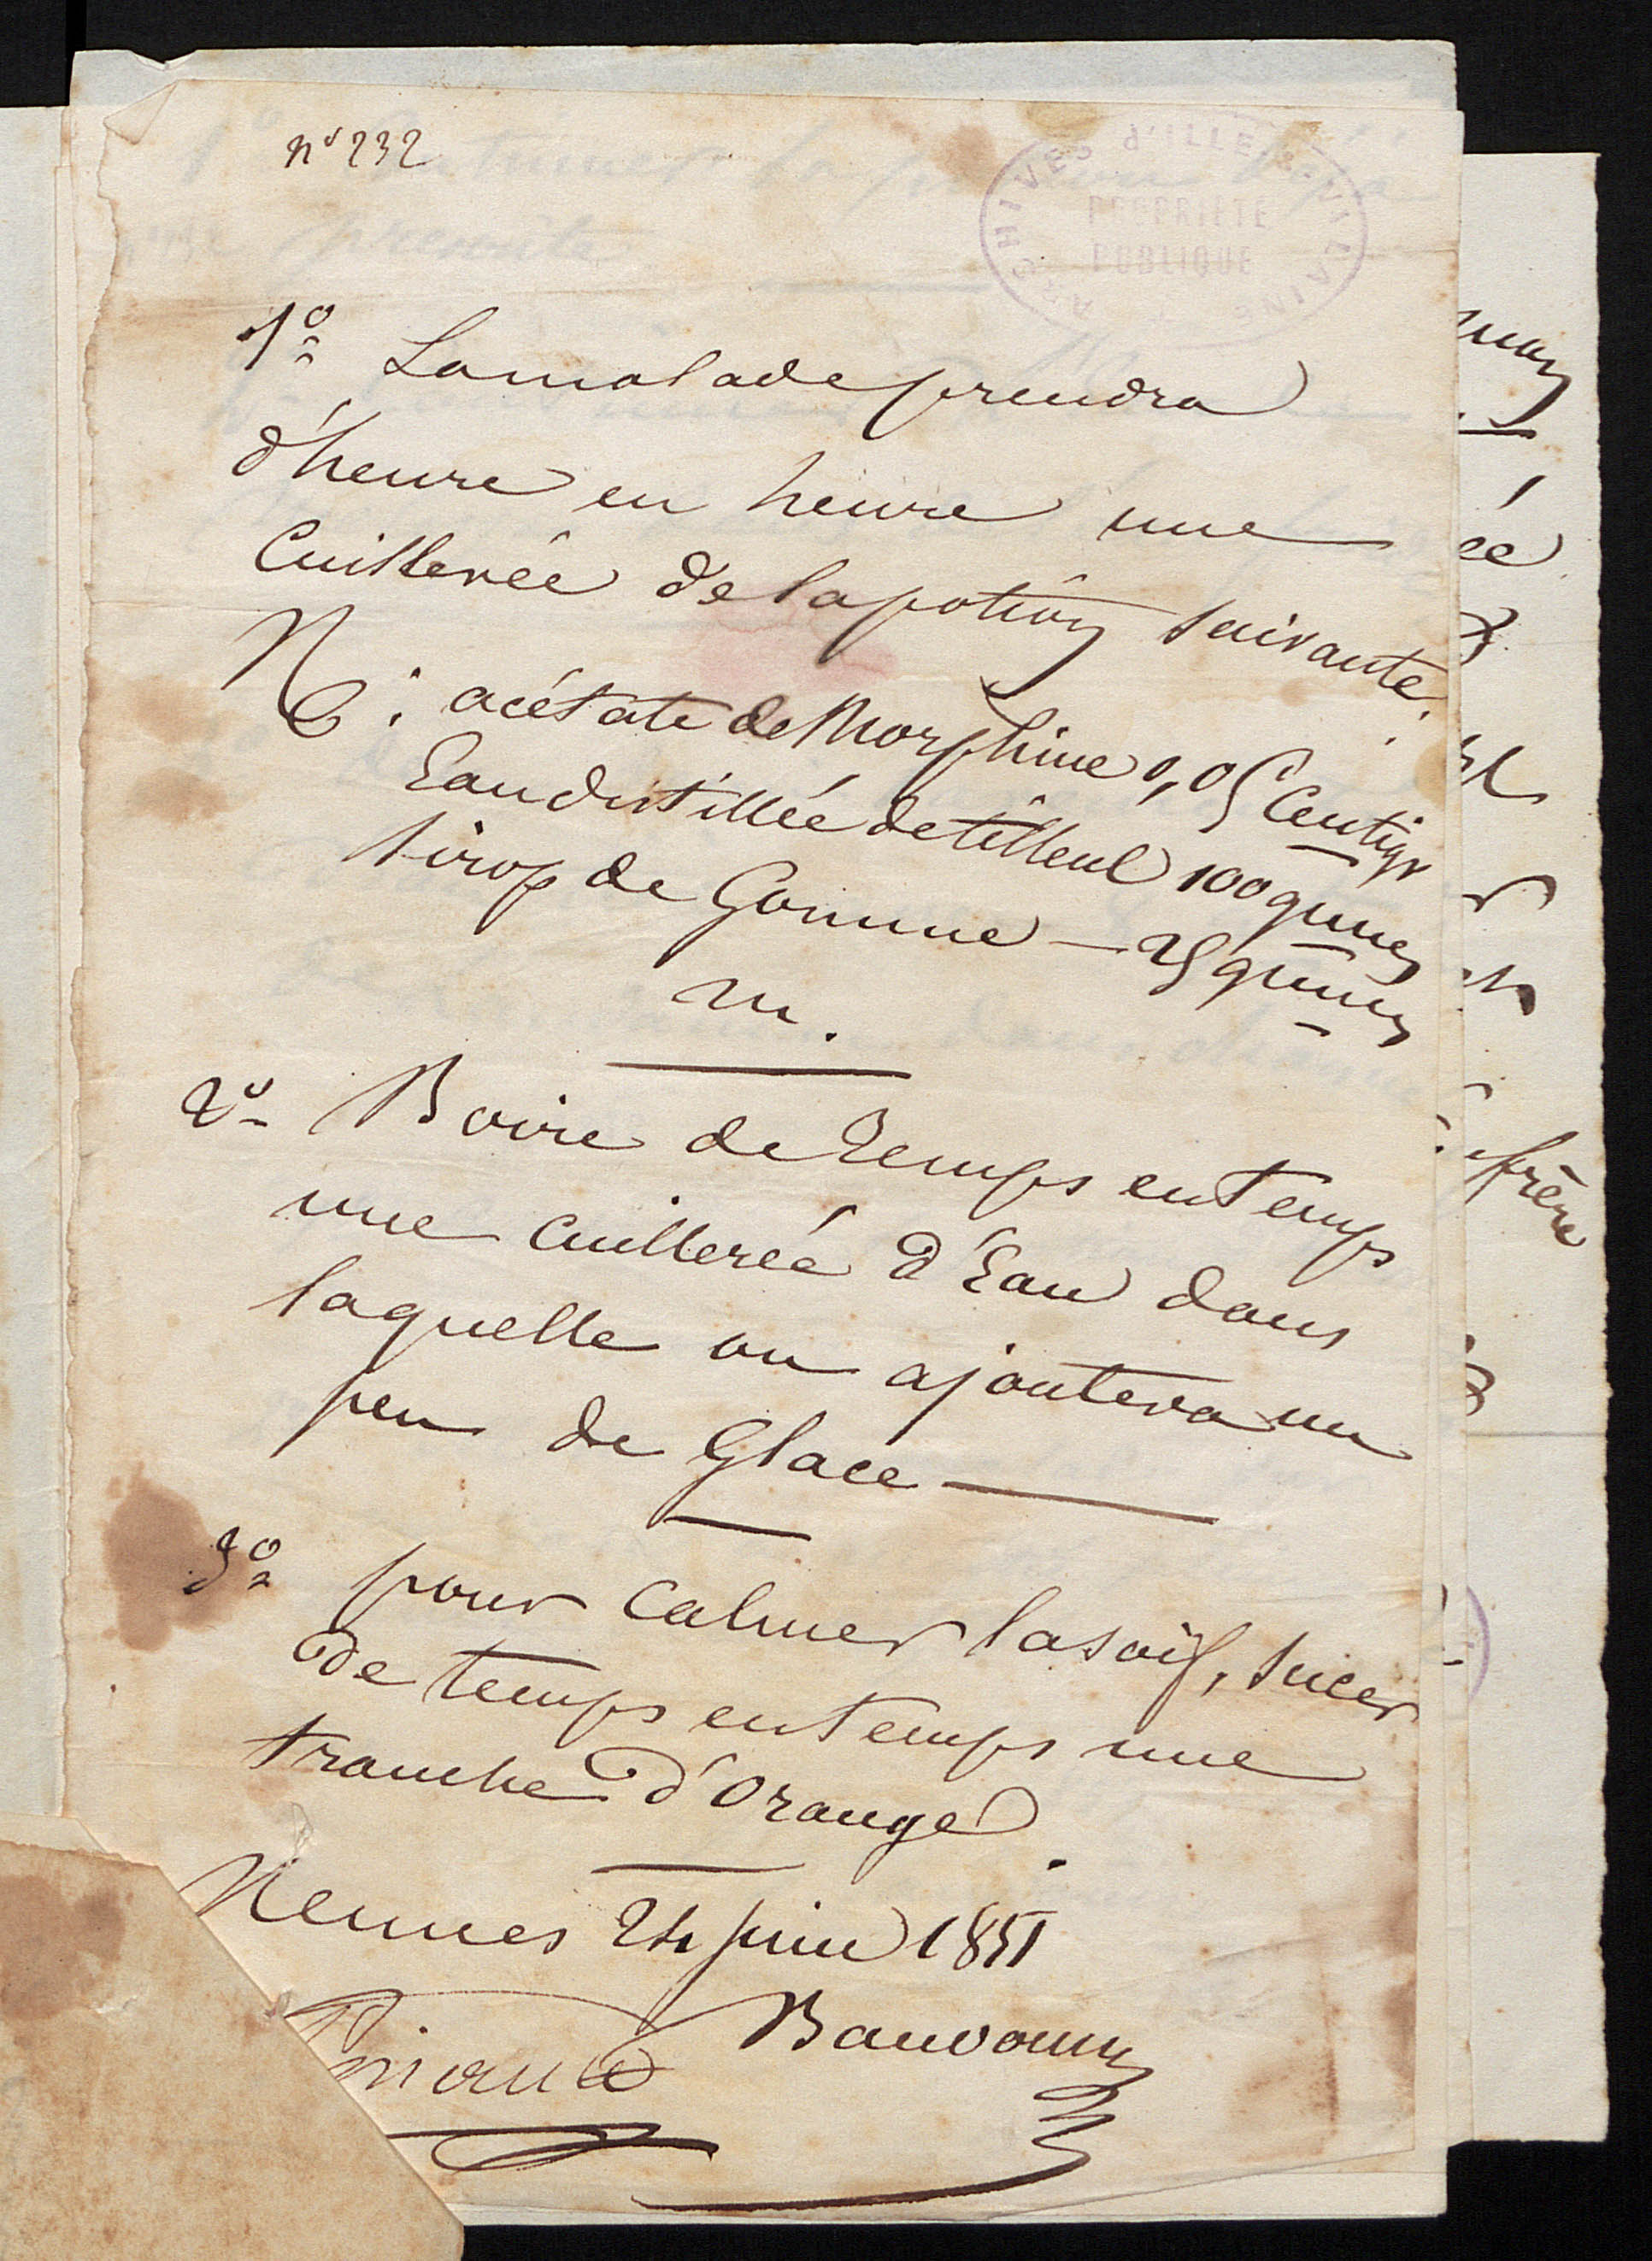 n° 232
ARCHIVES d'ILLE & VILAINE
PROPRIÉTÉ
PUBLIQUE
1° La malade prendra
d'heure en heure une
Cuillerée de la potion suivante.
R : acétate de Morphine 0,05 Centigr
Eau distillée de tilleul 100 gmmes
Sirop de Gomme — 25 gmmes
m.
2° Boire de temps en temps
une cuillerée d'Eau dans
laquelle on ajoutera un
peu de Glace —
3° pour calmer la soif, sucer
de temps en temps une
tranche d'Orange.
Rennes 24 juin 1851
frère